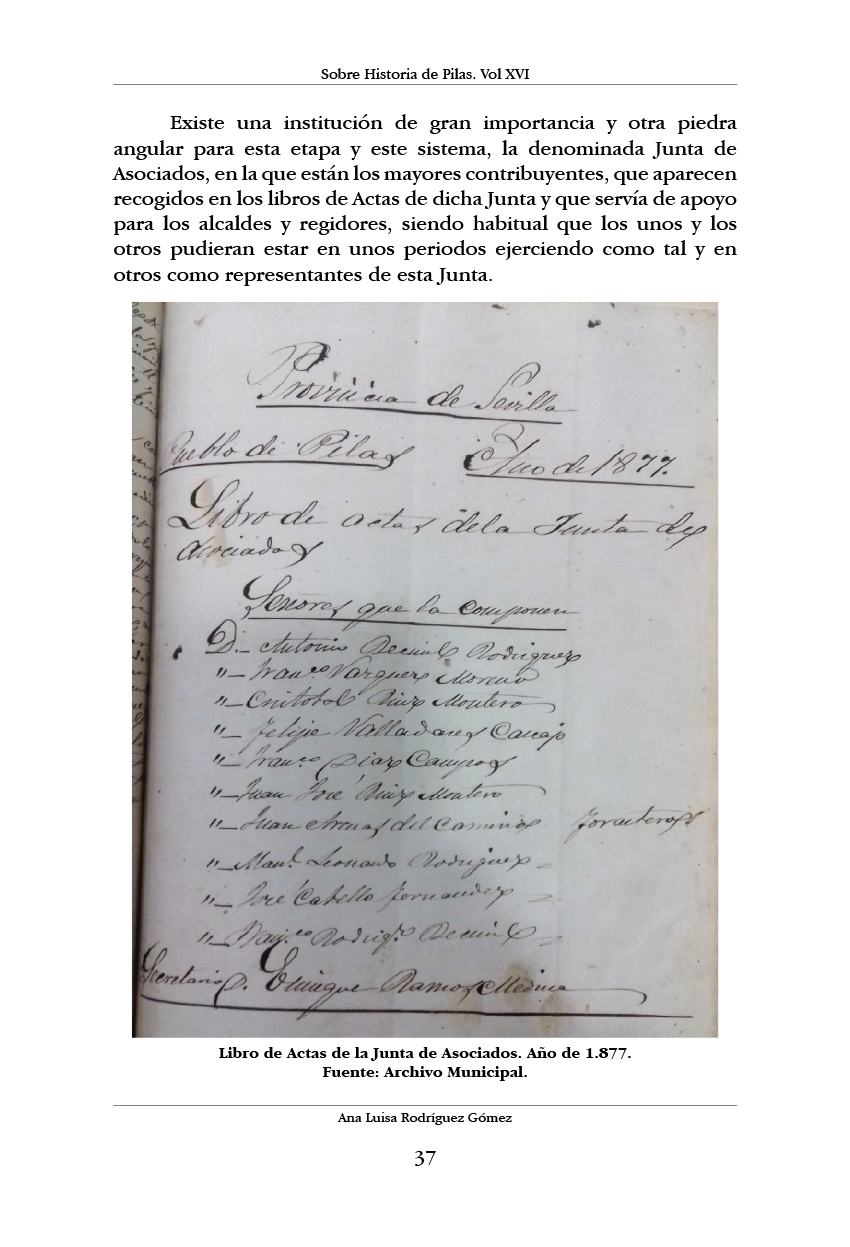 Sobre Historia de Pilas. Vol XVI
Existe una institución de gran importancia y otra piedra
angular para esta etapa y este sistema, la denominada Junta de
Asociados, en la que están los mayores contribuyentes, que aparecen
recogidos en los libros de Actas de dicha Junta y que servía de apoyo
para los alcaldes y regidores, siendo habitual que los unos y los
otros pudieran estar en unos periodos ejerciendo como tal y en
otros como representantes de esta Junta.
Provincia de Sevilla
Pueblo de Pilas Año de 1877.
Libro de actas de la Junta de
Asociados
Señores que la componen
D. - Antonio Rodriguez
"- Franco Vazquez Moreno
"- Cristobal Ruiz Montero
"- Felipe Valladares Cascajo
"- Franco Diaz Campos
"- Juan José Ruiz Montero
"- Juan Arenas del Camino forasteros
"- Manl. Leonardo Rodriguez =
"- José Cabello Fernandez =
"- Rodrigz. =
Secretario D. Enrique Ramos Medina
Libro de Actas de la Junta de Asociados. Año de 1.877.
Fuente: Archivo Municipal.
Ana Luisa Rodríguez Gómez
37